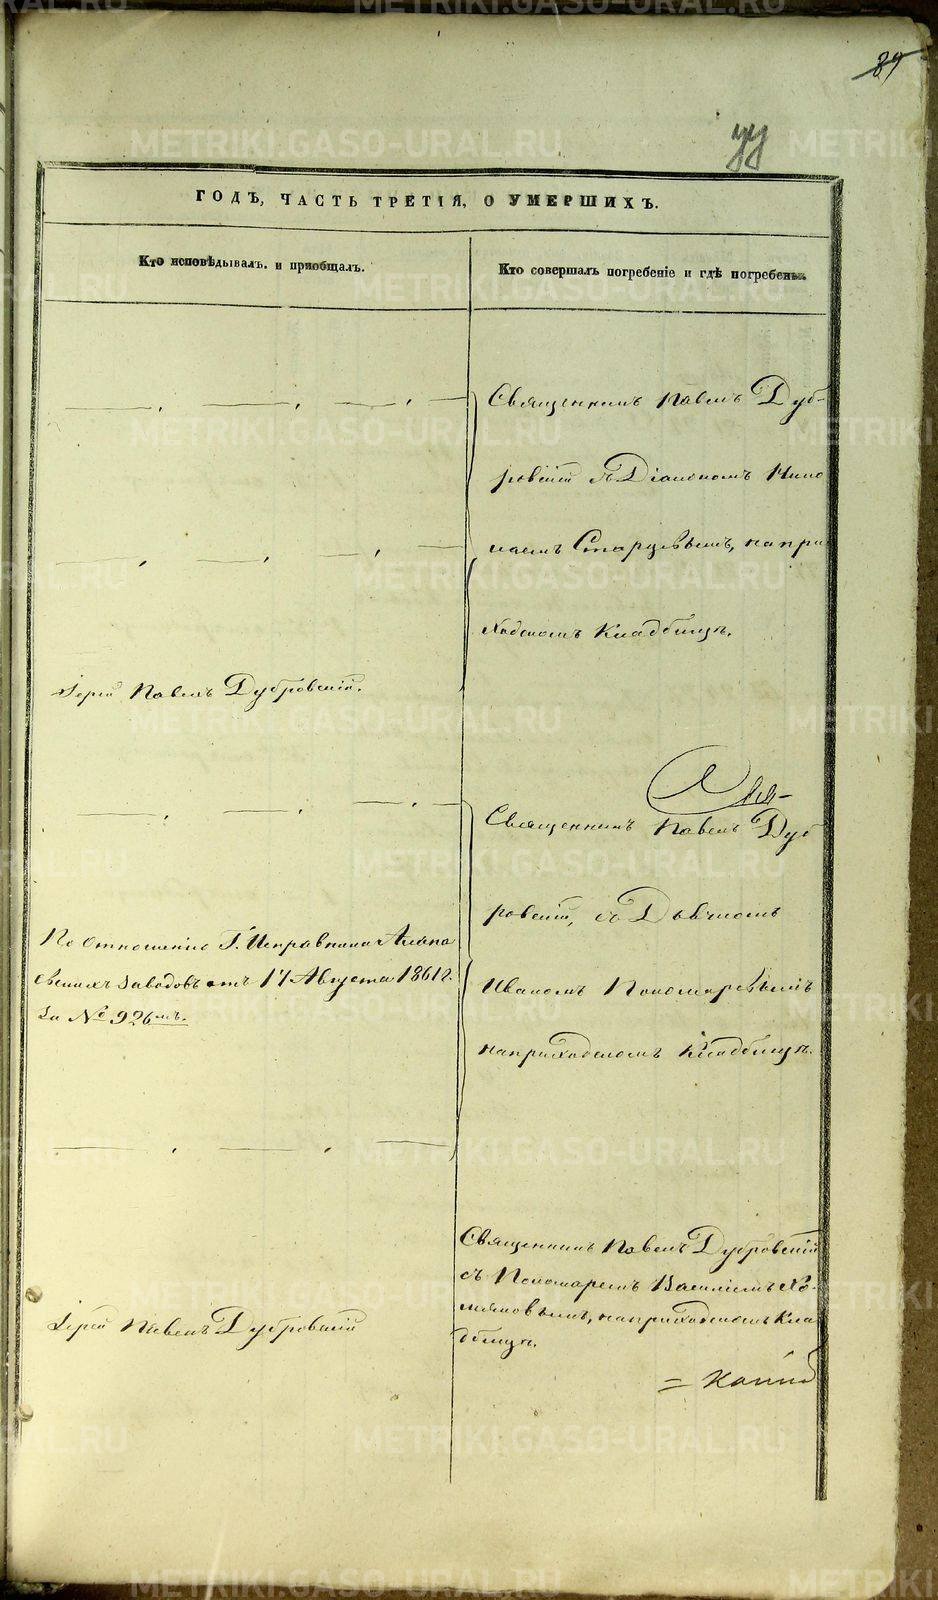 89
ГОДЪ, ЧАСТЬ ТРЕТІЯ, О УМЕРШИХЪ.
Кто исповѣдывалъ. и приобщалъ.
Кто совершалъ погребеніе и гдѣ погребены.
Священникъ Павелъ Дуб-
ровскій съ Діакономъ Нико
лаемъ Старцевымъ, на при
ходскомъ Кладбищѣ.
Іерей Павелъ Дубровскій.
Священникъ Павелъ Дуб
ровскій, съ Дьячкомъ
Иваномъ Пономаревымъ
на приходскомъ Кладбищѣ.
По отношенію Г. Исправника Алапа
евскихъ заводовъ отъ 17 Августа 1861 г.
За № 926мъ.
Священникъ Павелъ Дубровскій
съ Пономаремъ Василіемъ Хо-
мяковымъ, на приходскомъ Кла
дбищѣ.
Іерей Павелъ Дубровскій
METRIKI.GASO-URAL.RU